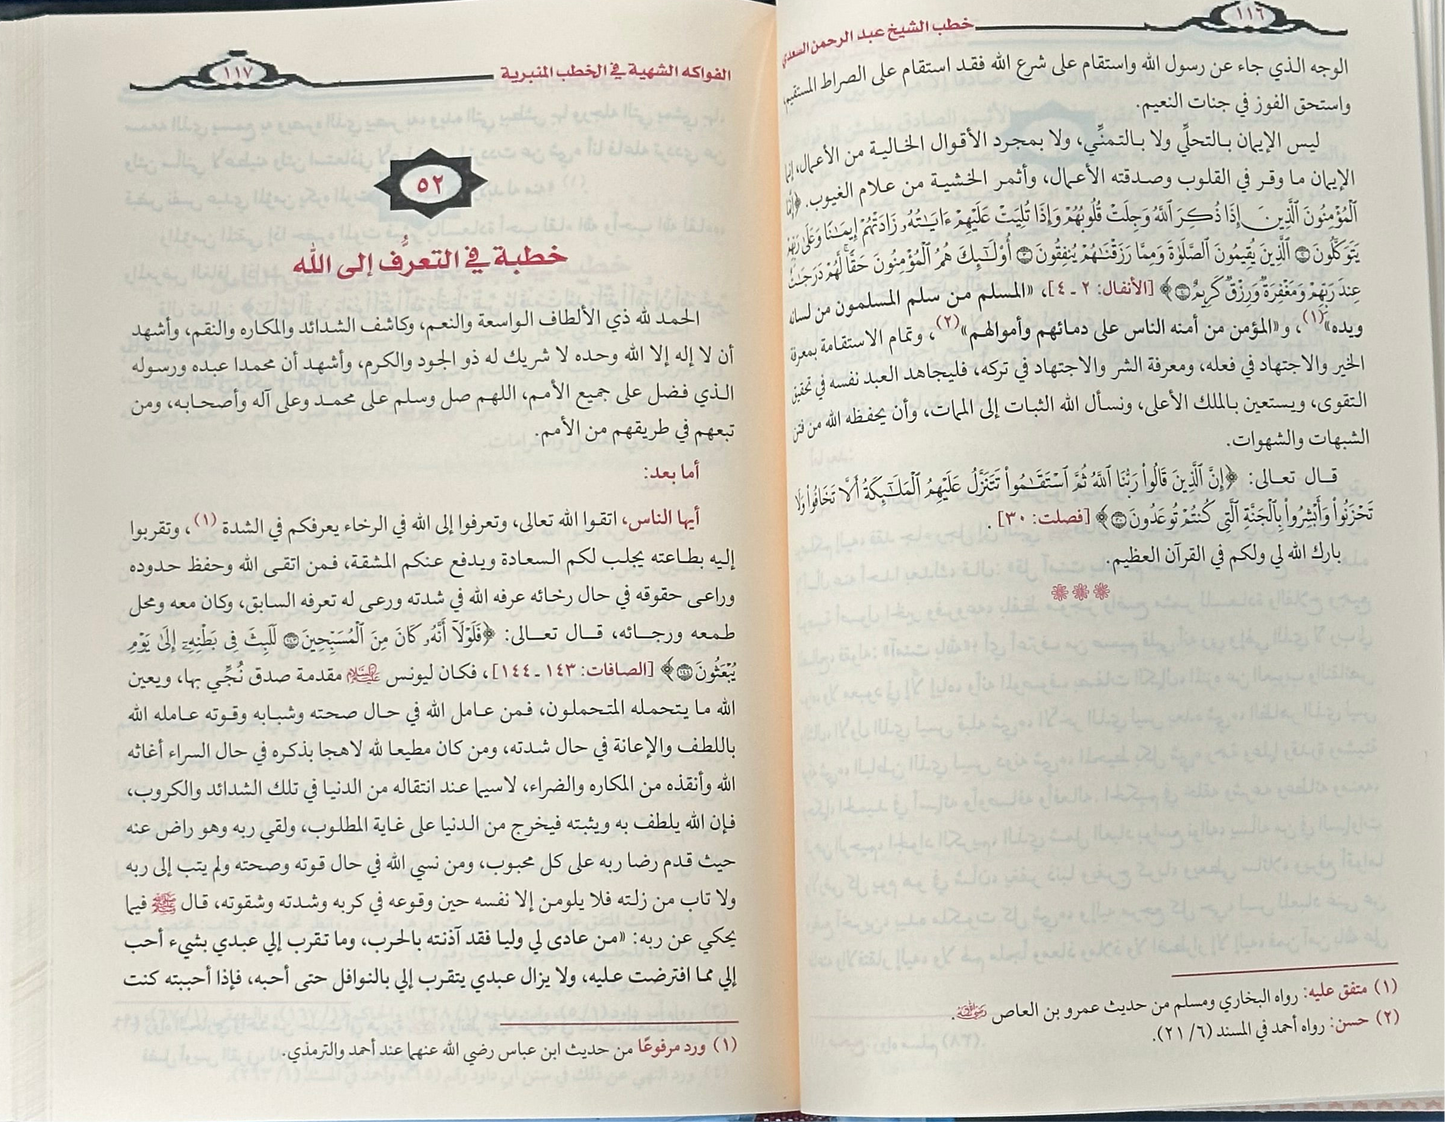 ١١٦
خطب الشيخ عبد الرحمن السعدي
الوجه الذي جاء عن رسول الله واستقام على شرع الله فقد استقام على الصراط المستقيم
واستحق الفوز في جنات النعيم.
ليس الإيمان بالتحلِّي ولا بالتمنِّي، ولا بمجرد الأقوال الخالية من الأعمال، إنما
الإيمان ما وقر في القلوب وصدقته الأعمال، وأثمر الخشية من علام الغيوب. ﴿إِنَّمَا
ٱلْمُؤْمِنُونَ ٱلَّذِينَ إِذَا ذُكِرَ ٱللَّهُ وَجِلَتْ قُلُوبُهُمْ وَإِذَا تُلِيَتْ عَلَيْهِمْ ءَايَٰتُهُۥ زَادَتْهُمْ إِيمَٰنًا وَعَلَىٰ رَبِّهِمْ
يَتَوَكَّلُونَ ۝٢ ٱلَّذِينَ يُقِيمُونَ ٱلصَّلَوٰةَ وَمِمَّا رَزَقْنَٰهُمْ يُنفِقُونَ ۝٣ أُو۟لَٰٓئِكَ هُمُ ٱلْمُؤْمِنُونَ حَقًّا لَّهُمْ دَرَجَٰتٌ
عِندَ رَبِّهِمْ وَمَغْفِرَةٌ وَرِزْقٌ كَرِيمٌ ۝٤﴾ [الأنفال: ٢ ـ ٤]، «المسلم من سلم المسلمون من لسانه
ويده»(١)، و«المؤمن من أمنه الناس على دمائهم وأموالهم»(٢)، وتمام الاستقامة بمعرفة
الخير والاجتهاد في فعله، ومعرفة الشر والاجتهاد في تركه، فليجاهد العبد نفسه في تحقيق
التقوى، ويستعين بالملك الأعلى، ونسأل الله الثبات إلى الممات، وأن يحفظه الله من فتن
الشبهات والشهوات.
قال تعالى: ﴿إِنَّ ٱلَّذِينَ قَالُوا۟ رَبُّنَا ٱللَّهُ ثُمَّ ٱسْتَقَٰمُوا۟ تَتَنَزَّلُ عَلَيْهِمُ ٱلْمَلَٰٓئِكَةُ أَلَّا تَخَافُوا۟ وَلَا
تَحْزَنُوا۟ وَأَبْشِرُوا۟ بِٱلْجَنَّةِ ٱلَّتِى كُنتُمْ تُوعَدُونَ ۝٣٠﴾ [فصلت: ٣٠].
بارك الله لي ولكم في القرآن العظيم.
(١) متفق عليه: رواه البخاري ومسلم من حديث عمرو بن العاص رضي الله عنه.
(٢) حسن: رواه أحمد في المسند (٦/ ٢١).
الفواكه الشهية في الخطب المنبرية
١١٧
٥٢
خطبة في التعرُّف إلى الله
الحمد لله ذي الألطاف الواسعة والنعم، وكاشف الشدائد والمكاره والنقم، وأشهد
أن لا إله إلا الله وحده لا شريك له ذو الجود والكرم، وأشهد أن محمدا عبده ورسوله
الذي فضل على جميع الأمم، اللهم صل وسلم على محمد وعلى آله وأصحابه، ومن
تبعهم في طريقهم من الأمم.
أما بعد:
أيها الناس، اتقوا الله تعالى، وتعرفوا إلى الله في الرخاء يعرفكم في الشدة (١)، وتقربوا
إليه بطاعته يجلب لكم السعادة ويدفع عنكم المشقة، فمن اتقى الله وحفظ حدوده
وراعى حقوقه في حال رخائه عرفه الله في شدته ورعى له تعرفه السابق، وكان معه ومحل
طمعه ورجائه، قال تعالى: ﴿فَلَوْلَآ أَنَّهُۥ كَانَ مِنَ ٱلْمُسَبِّحِينَ ۝١٤٣ لَلَبِثَ فِى بَطْنِهِۦٓ إِلَىٰ يَوْمِ
يُبْعَثُونَ ۝١٤٤﴾ [الصافات: ١٤٣ ـ ١٤٤]، فكان ليونس ﷺ مقدمة صدق نُجِّي بها، ويعين
الله ما يتحمله المتحملون، فمن عامل الله في حال صحته وشبابه وقوته عامله الله
باللطف والإعانة في حال شدته، ومن كان مطيعا لله لاهجا بذكره في حال السراء أغاثه
الله وأنقذه من المكاره والضراء، لاسيما عند انتقاله من الدنيا في تلك الشدائد والكروب،
فإن الله يلطف به ويثبته فيخرج من الدنيا على غاية المطلوب، ولقي ربه وهو راض عنه
حيث قدم رضا ربه على كل محبوب، ومن نسي الله في حال قوته وصحته ولم يتب إلى ربه
ولا تاب من زلته فلا يلومن إلا نفسه حين وقوعه في كربه وشدته وشقوته، قال ﷺ فيما
يحكي عن ربه: «من عادى لي وليا فقد آذنته بالحرب، وما تقرب إلي عبدي بشيء أحب
إلي مما افترضت عليه، ولا يزال عبدي يتقرب إلي بالنوافل حتى أحبه، فإذا أحببته كنت
(١) ورد مرفوعًا من حديث ابن عباس رضي الله عنهما عند أحمد والترمذي.